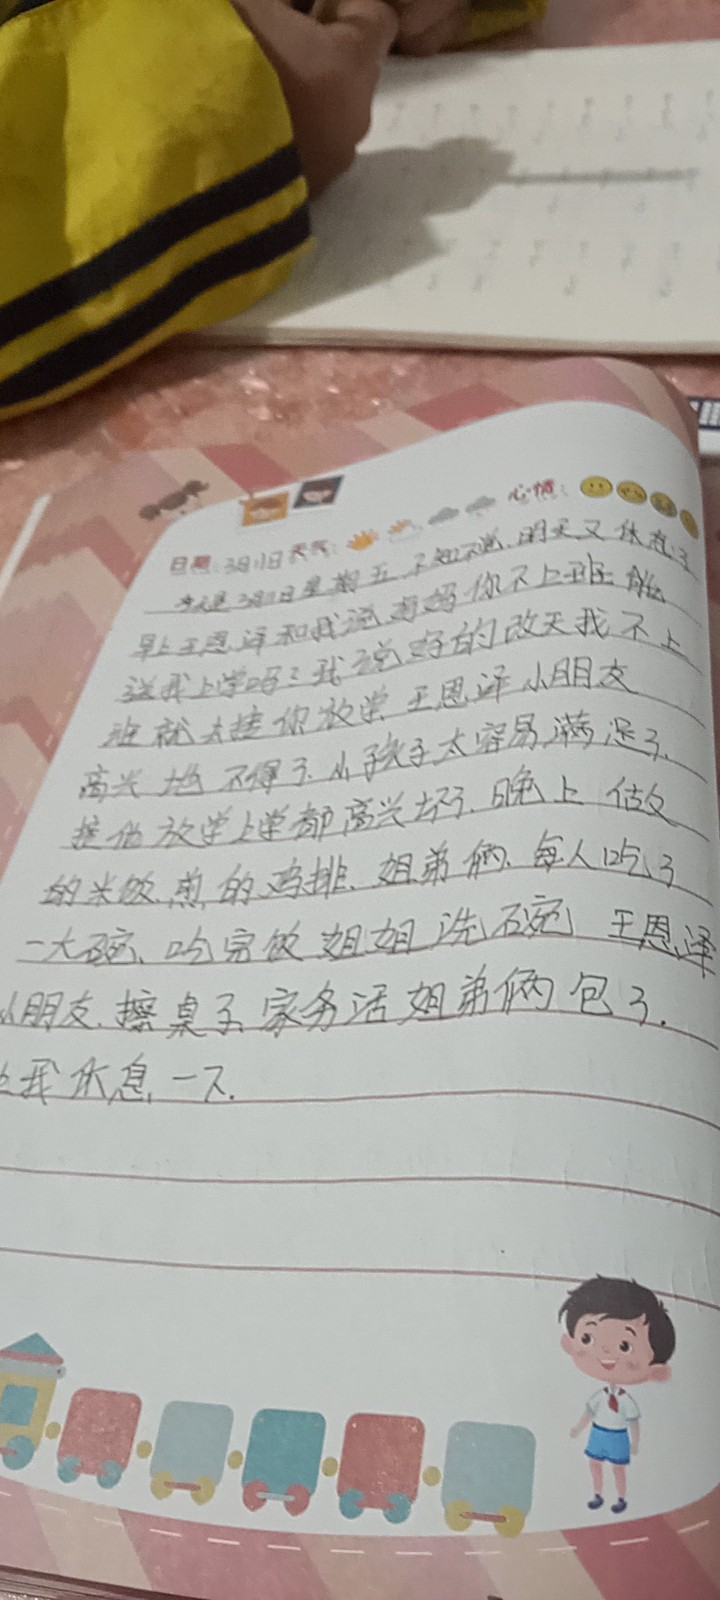 日期：3月11日 天气： 心情：
今天是3月11日星期五，不知不觉，明天又休息了
早上王恩泽和我说妈妈你不上班能
送我上学吗？我说好的改天我不上
班就去接你放学 王恩泽小朋友
高兴地不得了.小孩子太容易满足了.
接他放学上学都高兴坏了.晚上 给做
的米饭.煎的鸡排.姐弟俩.每人吃了
一大碗、吃完饭 姐姐洗碗 王恩泽
小朋友.擦桌子 家务活姐弟俩包了.
让我休息一下.